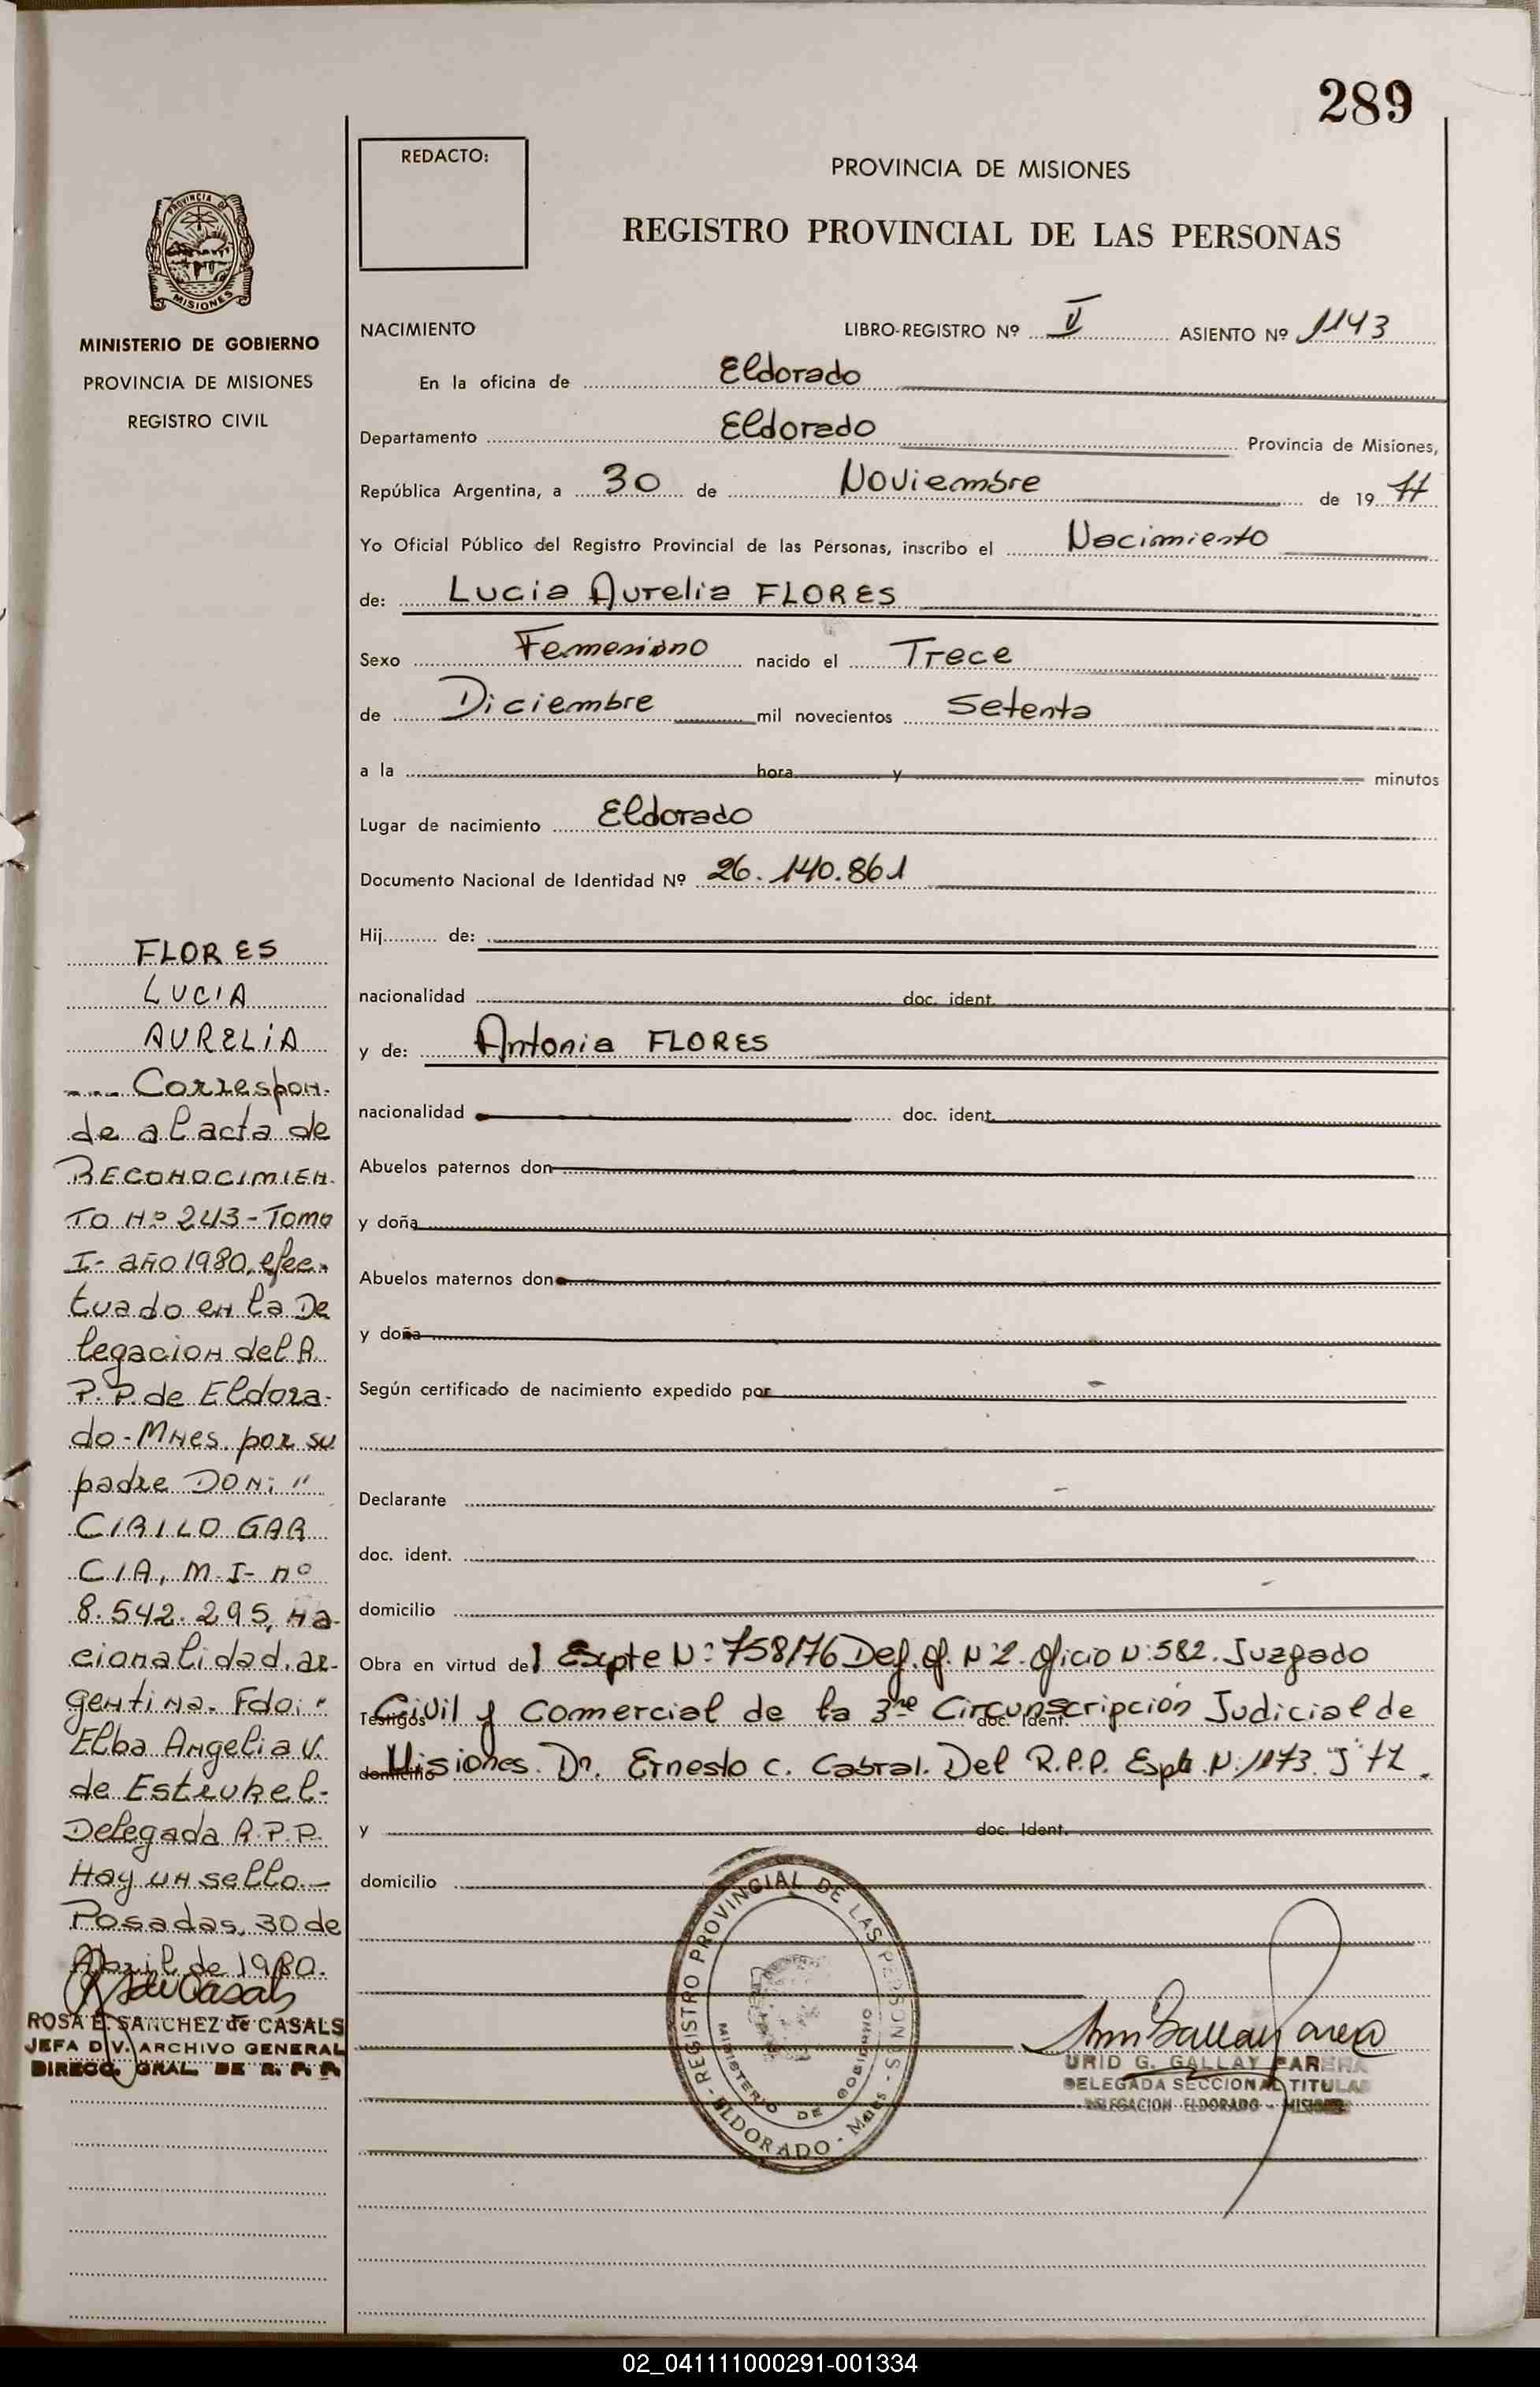 289
REDACTO:
PROVINCIA DE MISIONES
REGISTRO PROVINCIAL DE LAS PERSONAS
PROVINCIA DE
MISIONES
MINISTERIO DE GOBIERNO
PROVINCIA DE MISIONES
REGISTRO CIVIL
NACIMIENTO LIBRO-REGISTRO Nº V ASIENTO Nº 1143
En la oficina de Eldorado
Departamento Eldorado Provincia de Misiones,
República Argentina, a 30 de Noviembre de 19 77
Yo Oficial Público del Registro Provincial de las Personas, inscribo el Nacimiento
de: Lucia Aurelia FLORES
Sexo Femenino nacido el Trece
de Diciembre mil novecientos Setenta
a la hora y minutos
Lugar de nacimiento Eldorado
Documento Nacional de Identidad Nº 26.140.861
Hij de:
nacionalidad doc. ident.
y de: Antonia FLORES
nacionalidad doc. ident.
Abuelos paternos don
y doña
Abuelos maternos don
y doña
Según certificado de nacimiento expedido por
Declarante
doc. ident.
domicilio
Obra en virtud del Expte Nº 758/76 Def. Of. Nº 2. Oficio Nº 582. Juzgado
Testigos Civil y Comercial de la 3ra Circunscripción Judicial de
doc. Ident.
domicilio Misiones. Dr. Ernesto C. Cabral. Del R.P.P. Expte Nº 1173
y doc. Ident.
domicilio
FLORES
LUCIA
AURELIA
Correspon-
de al acta de
RECONOCIMIEN-
TO Nº 243-Tomo
I- año 1980, efec-
tuado en la De
legacion del R.
P.P. de Eldora-
do-Mnes. por su
padre DON: "
CIRILO GAR
CIA, M.I- nº
8.542.295, Na-
cionalidad, ar-
gentina. Fdo: "
Elba Angelia V.
de Estrubel-
Delegada R.P.P.
Hay un sello.-
Posadas, 30 de
Abril de 1980.
ROSA E. SANCHEZ de CASALS
JEFA DIV. ARCHIVO GENERAL
DIRECC. GRAL. DE R. P. P.
REGISTRO PROVINCIAL DE LAS PERSONAS
MINISTERIO DE GOBIERNO
ELDORADO - Mnes
URID G. GALLAY PARERA
DELEGADA SECCIONAL TITULAR
DELEGACION ELDORADO - MISIONES
02_041111000291-001334